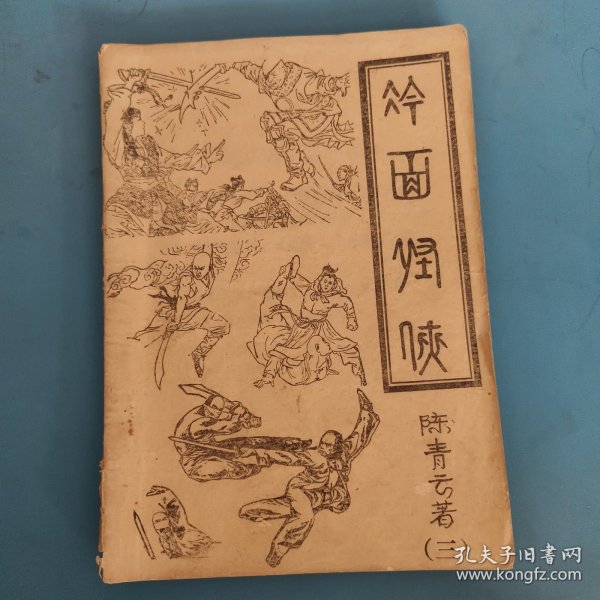 冷面怪侠
陈青云著
(三)
孔夫子旧书网
www.kongfz.com